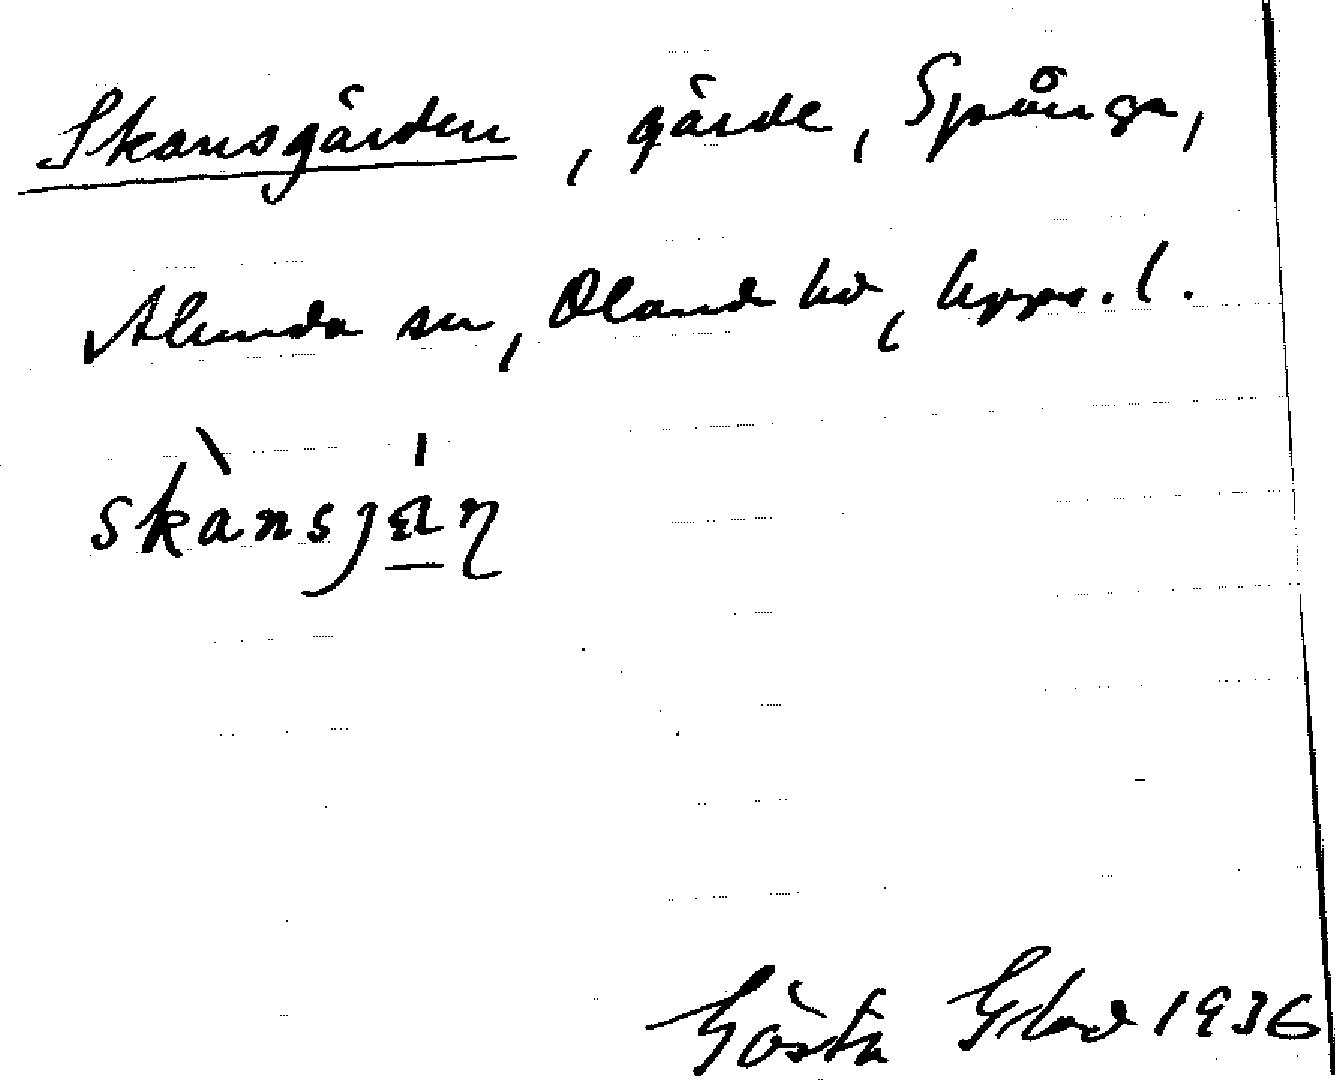 Skansgärden, gärde, Spånga,
Alunda sn, Oland hd, Upps. l.
skànsjǽ̲ɳ
Gösta Glad 1936